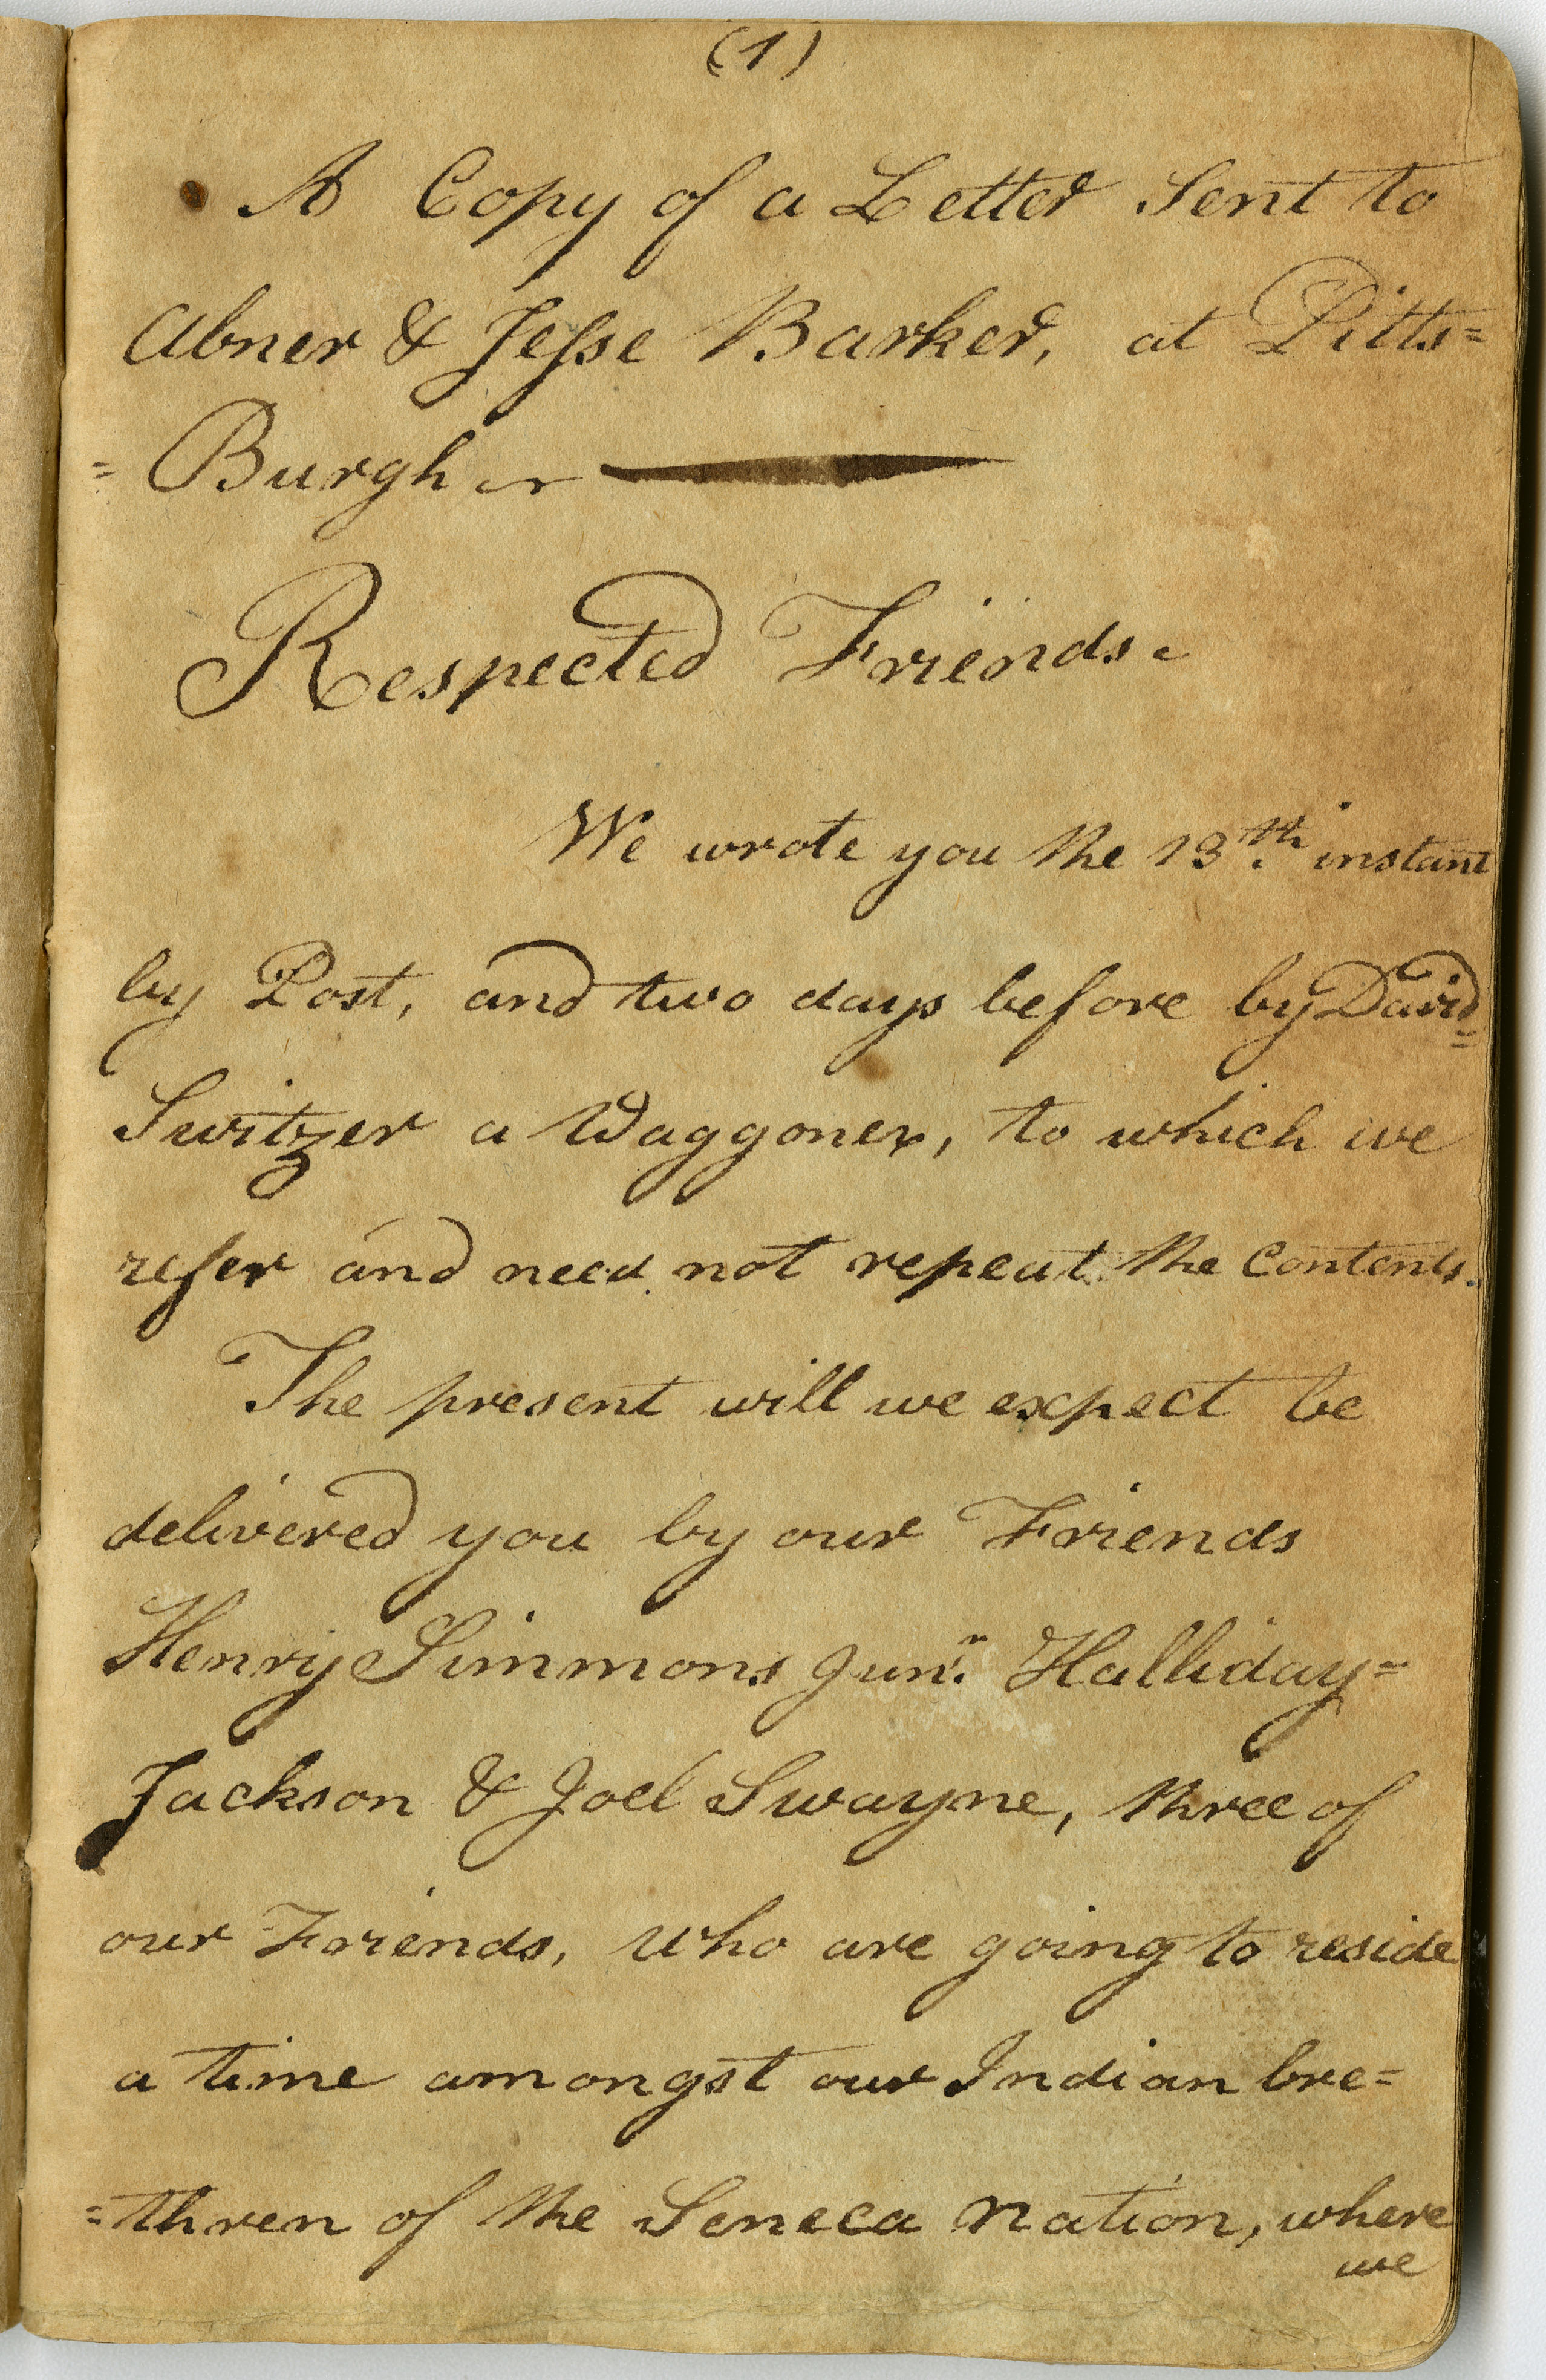 (1)
A Copy of a Letter Sent to
Abner & Jesse Barker, at Pitts=
=Burgh
Respected Friends.
We wrote you the 13th. instant
by Post, and two days before by David=
Switzer a Waggoner, to which we
refer and need not repeat the Contents.
The present will we expect be
delivered you by our Friends
Henry Simmons Junr. Halliday=
Jackson & Joel Swayne, three of
our Friends, who are going to reside
a time amongst our Indian bre=
=thren of the Seneca Nation, where
we